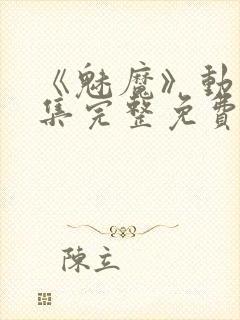 《魅魔》動
集完整免費
陳立